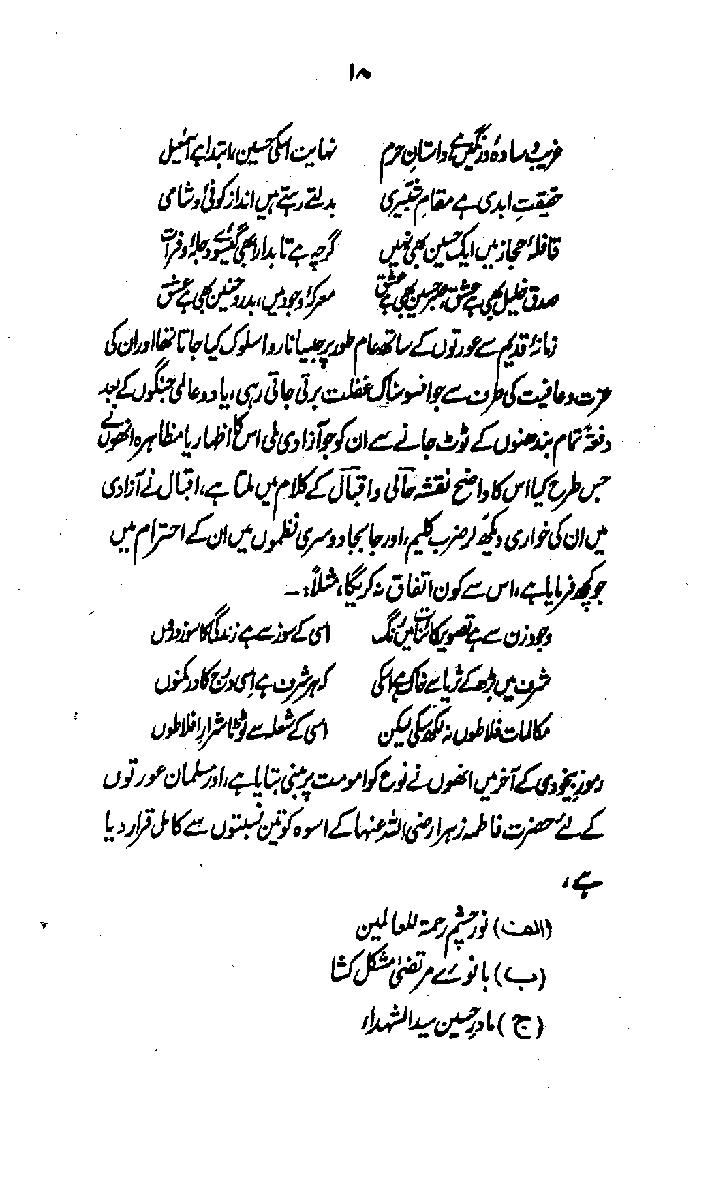 ۱۸
غریب و سادہ و رنگیں ہے داستانِ حرم نہایت اسکی حسین، ابتدا ہے اسمٰعیل
حقیقتِ ابدی ہے مقامِ شبیری بدلتے رہتے ہیں انداز کوفی و شامی
قافلۂ حجاز میں ایک حسین بھی نہیں گرچہ ہے تابدار ابھی گیسوئے دجلہ و فرات
صدق خلیل بھی ہے عشق، صبر حسین بھی ہے عشق معرکۂ وجود میں، بدر و حنین بھی ہے عشق
زمانۂ قدیم سے عورتوں کے ساتھ عام طور پر جیسا ناروا سلوک کیا جاتا تھا اور ان کی
عزت و عافیت کی طرف سے جو افسوسناک غفلت برتی جاتی رہی، یا دو عالمی جنگوں کے بعد
دفعۃً تمام بندھنوں کے ٹوٹ جانے سے ان کو جو آزادی ملی اس کا اظہار یا مظاہرہ انھوں نے
جس طرح کیا اس کا واضح نقشہ حالی و اقبال کے کلام میں ملتا ہے، اقبال نے آزادی
میں ان کی خواری دیکھ کر ضرب کلیم، اور جابجا دوسری نظموں میں ان کے احترام میں
جو کچھ فرمایا ہے، اس سے کون اتفاق نہ کریگا، مثلاً:۔
وجود زن سے ہے تصویر کائنات میں رنگ اسی کے سوز سے ہے زندگی کا سوز دروں
شرف میں بڑھ کے ثریا سے خاک ہے اسکی کہ ہر شرف ہے اسی درج کا در مکنوں
مکالمات فلاطوں نہ لکھ سکی لیکن اسی کے شعلہ سے ٹوٹا شرار افلاطوں
رموز بیخودی کے آخر میں انھوں نے نوع کو امومت پر مبنی بتایا ہے، اور مسلمان عورتوں
کے لئے حضرت فاطمہ زہرا رضی اللہ عنہا کے اسوہ کو تین نسبتوں سے کامل قرار دیا
ہے،
(الف) نور چشم رحمۃ للعالمین
(ب) بانوے مرتضیٰ مشکل کشا
(ج) مادر حسین سید الشہداء